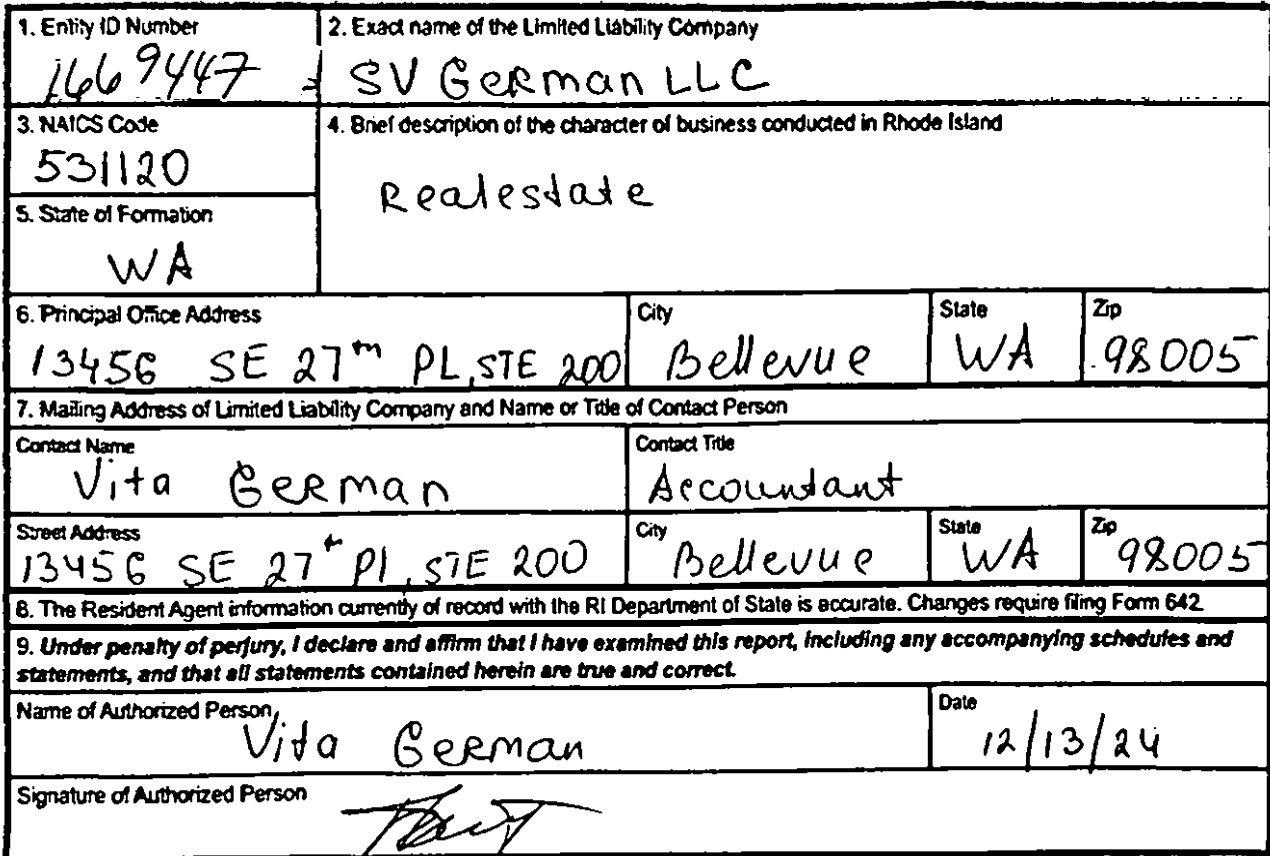 1. Entity ID Number
1669447
2. Exact name of the Limited Liability Company
SV German LLC
3. NAICS Code
531120
4. Brief description of the character of business conducted in Rhode Island
Realestate
5. State of Formation
WA
6. Principal Office Address
13456 SE 27th PL, STE 200
City
Bellevue
State
WA
Zip
98005
7. Mailing Address of Limited Liability Company and Name or Title of Contact Person
Contact Name
Vita German
Contact Title
Accountant
Street Address
13456 SE 27th Pl, STE 200
City
Bellevue
State
WA
Zip
98005
8. The Resident Agent information currently of record with the RI Department of State is accurate. Changes require filing Form 642.
9. Under penalty of perjury, I declare and affirm that I have examined this report, including any accompanying schedules and
statements, and that all statements contained herein are true and correct.
Name of Authorized Person
Vita German
Date
12/13/24
Signature of Authorized Person